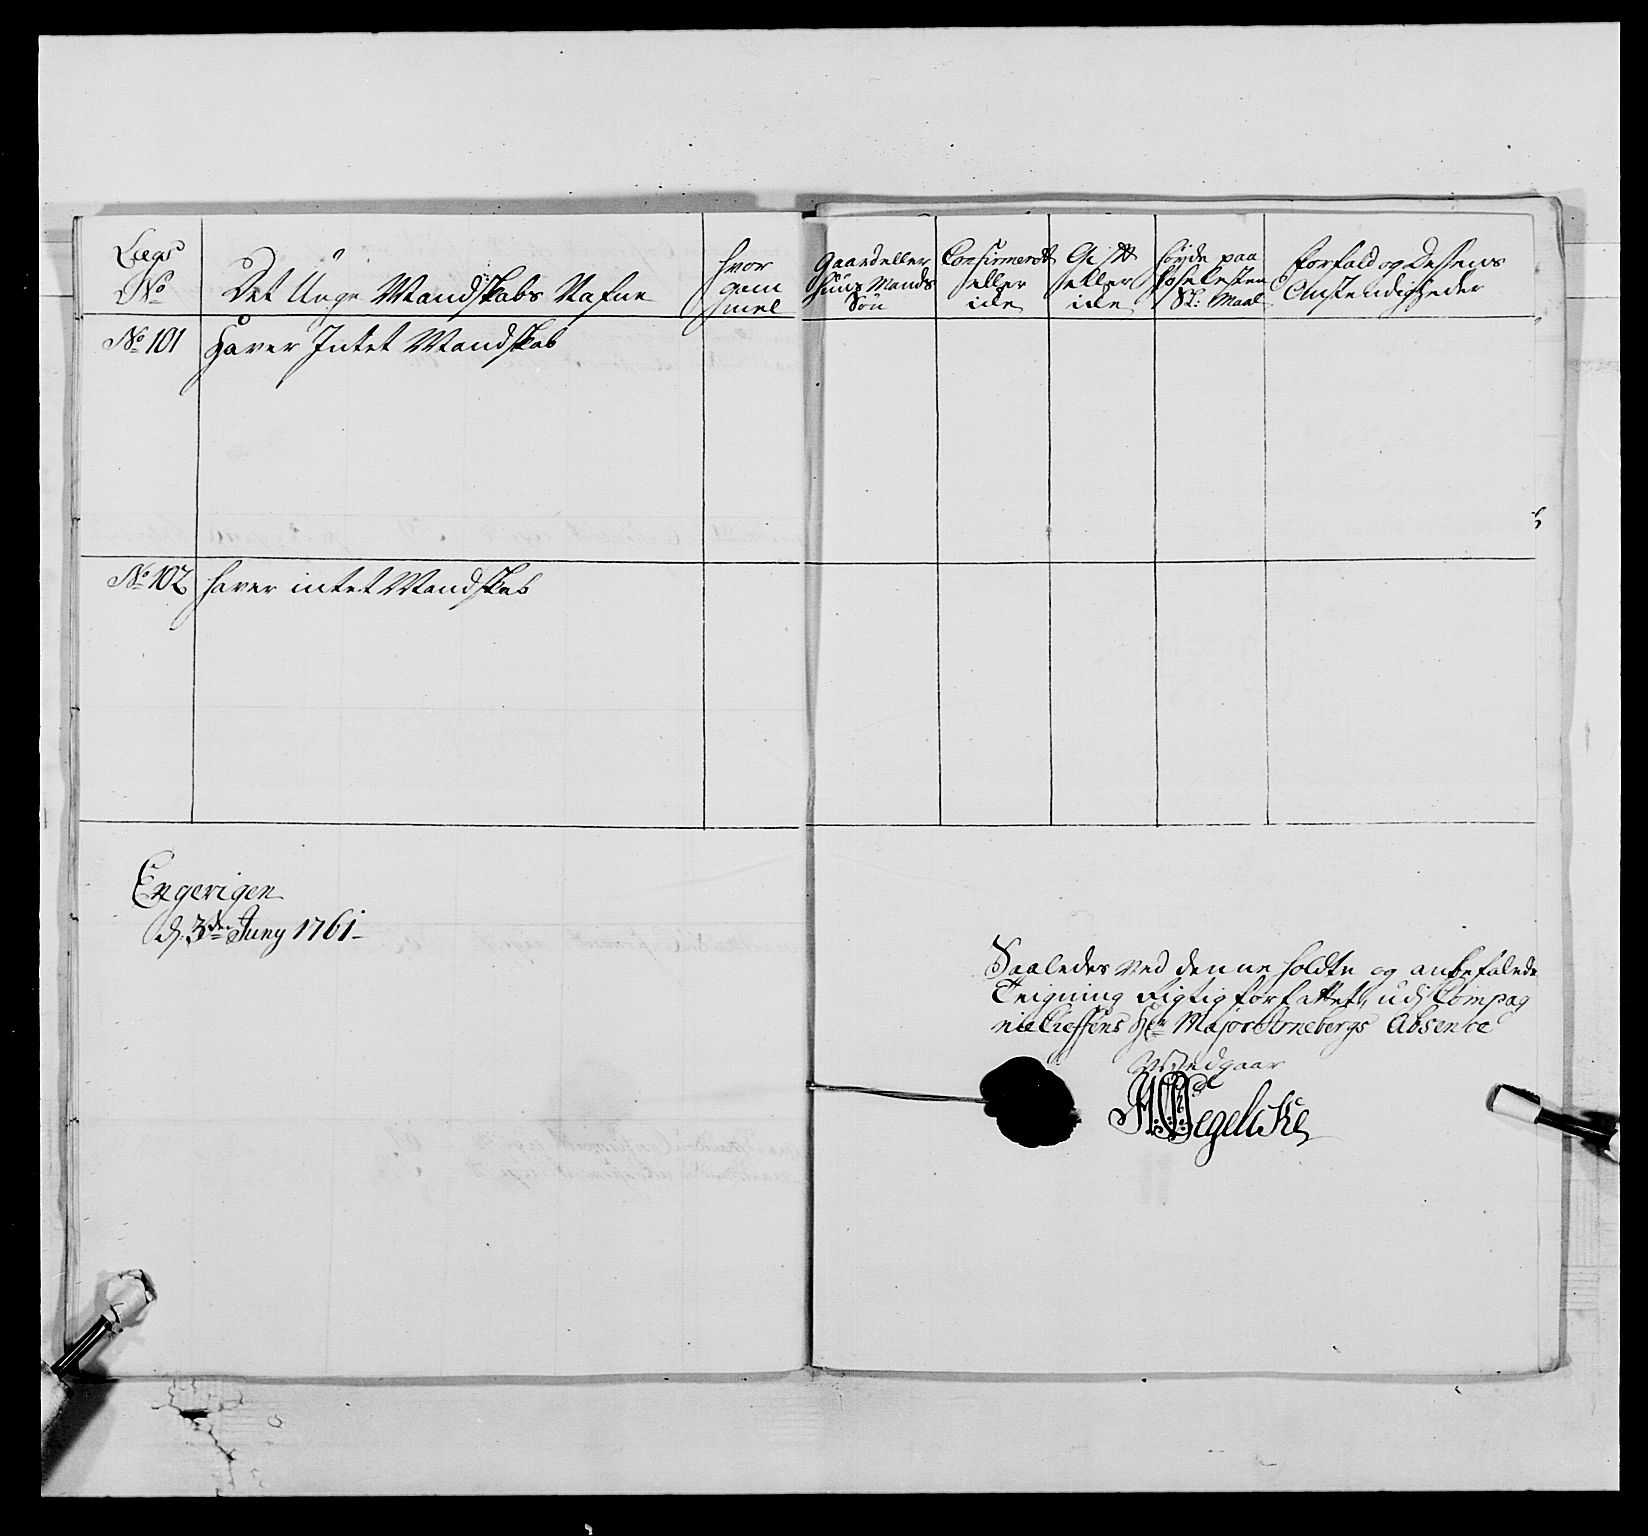 Lægs
No
Det Unge Mandskabs Nafne
hvor
gam
mel
Gaard eller
Huus Mands
Søn
Confirmerdt
eller
icke
Gift
eller
icke
høyde paa
hoselesten
St: Maal
Forfald og Dessens
Omstendigheder
No 101 Haver Intet Mandskab
No 102 haver intet Mandskab
Engerigen
d. 3den Juny 1761
Saaledes ved denne holdte og anbefalede
Teigning Rigtig forfattet, udj Compag
nie Cheffens Hr Major Arnebergs Absence
Vedgaar
Segelcke